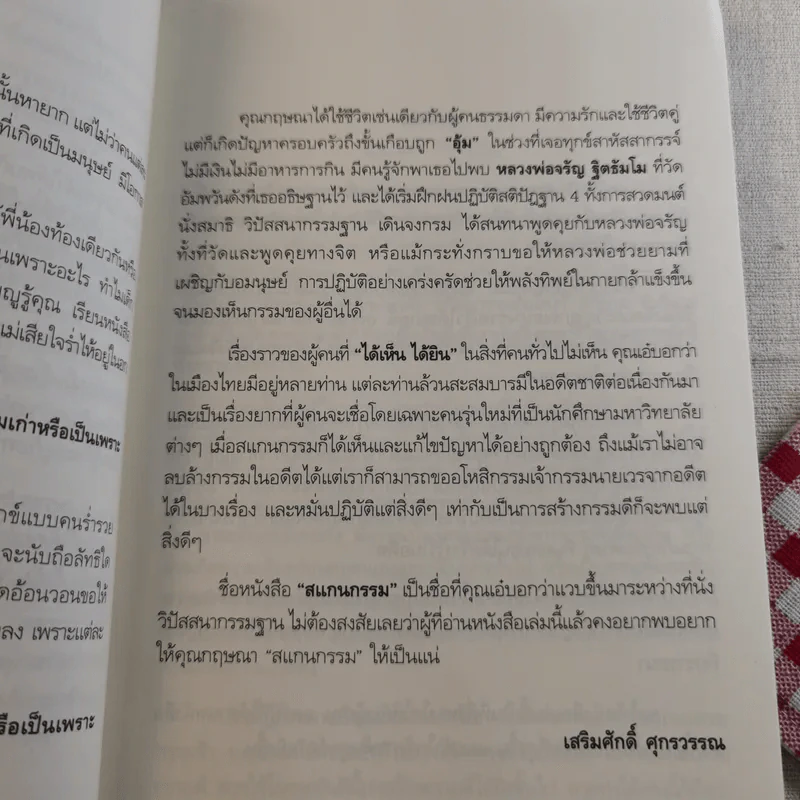 นั้นหายาก แต่ไม่ว่าคนแต่ละ
ที่เกิดเป็นมนุษย์ มีโอกาส
พี่น้องท้องเดียวกันหรือ
นเพราะอะไร ทำไมเด็ก
ญญูรู้คุณ เรียนหนังสือ
แม่เสียใจร่ำไห้อยู่ในอก
มเก่าหรือเป็นเพราะ
กข์แบบคนร่ำรวย
จะนับถือลัทธิใด
ดอ้อนวอนขอให้
ลง เพราะแต่ละ
รือเป็นเพราะ
คุณกฤษณาได้ใช้ชีวิตเช่นเดียวกับผู้คนธรรมดา มีความรักและใช้ชีวิตคู่
แต่ก็เกิดปัญหาครอบครัวถึงขั้นเกือบถูก "อุ้ม" ในช่วงที่เจอทุกข์สาหัสสากรรจ์
ไม่มีเงินไม่มีอาหารการกิน มีคนรู้จักพาเธอไปพบ หลวงพ่อจรัญ ฐิตธัมโม ที่วัด
อัมพวันดังที่เธออธิษฐานไว้ และได้เริ่มฝึกฝนปฏิบัติสติปัฏฐาน 4 ทั้งการสวดมนต์
นั่งสมาธิ วิปัสสนากรรมฐาน เดินจงกรม ได้สนทนาพูดคุยกับหลวงพ่อจรัญ
ทั้งที่วัดและพูดคุยทางจิต หรือแม้กระทั่งกราบขอให้หลวงพ่อช่วยยามที่
เผชิญกับอมนุษย์ การปฏิบัติอย่างเคร่งครัดช่วยให้พลังทิพย์ในกายกล้าแข็งขึ้น
จนมองเห็นกรรมของผู้อื่นได้
เรื่องราวของผู้คนที่ "ได้เห็น ได้ยิน" ในสิ่งที่คนทั่วไปไม่เห็น คุณเอ๋บอกว่า
ในเมืองไทยมีอยู่หลายท่าน แต่ละท่านล้วนสะสมบารมีในอดีตชาติต่อเนื่องกันมา
และเป็นเรื่องยากที่ผู้คนจะเชื่อโดยเฉพาะคนรุ่นใหม่ที่เป็นนักศึกษามหาวิทยาลัย
ต่างๆ เมื่อสแกนกรรมก็ได้เห็นและแก้ไขปัญหาได้อย่างถูกต้อง ถึงแม้เราไม่อาจ
ลบล้างกรรมในอดีตได้แต่เราก็สามารถขออโหสิกรรมเจ้ากรรมนายเวรจากอดีต
ได้ในบางเรื่อง และหมั่นปฏิบัติแต่สิ่งดีๆ เท่ากับเป็นการสร้างกรรมดีก็จะพบแต่
สิ่งดีๆ
ชื่อหนังสือ "สแกนกรรม" เป็นชื่อที่คุณเอ๋บอกว่าแวบขึ้นมาระหว่างที่นั่ง
วิปัสสนากรรมฐาน ไม่ต้องสงสัยเลยว่าผู้ที่อ่านหนังสือเล่มนี้แล้วคงอยากพบอยาก
ให้คุณกฤษณา "สแกนกรรม" ให้เป็นแน่
เสริมศักดิ์ ศุกรวรรณ